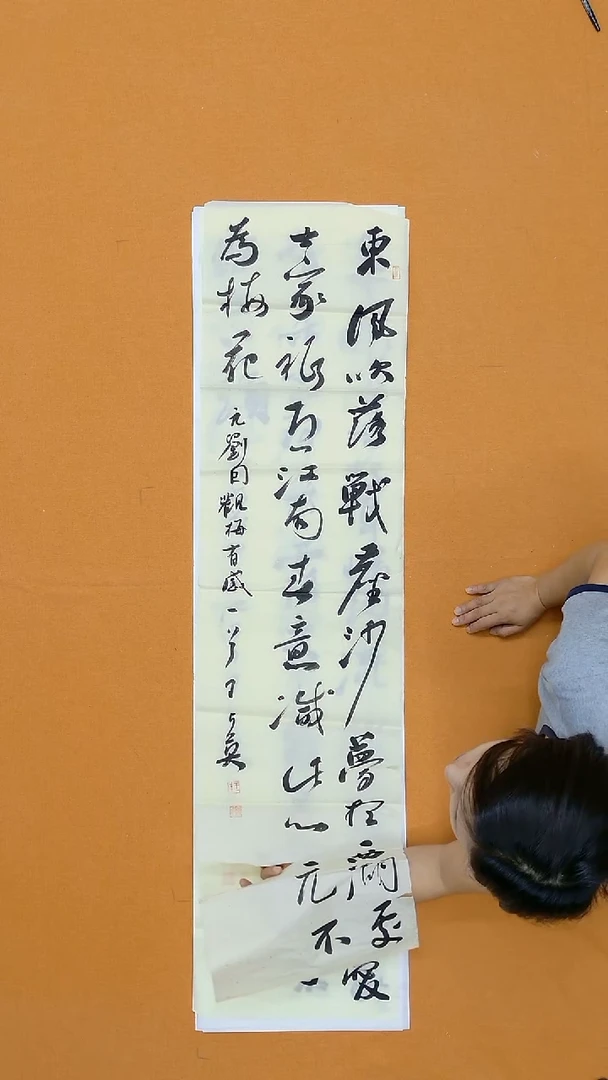 東風吹落戰塵沙夢想西湖處暖
士家祇恐江南春意減此心元不一
為梅花
元劉因觀梅有感一首